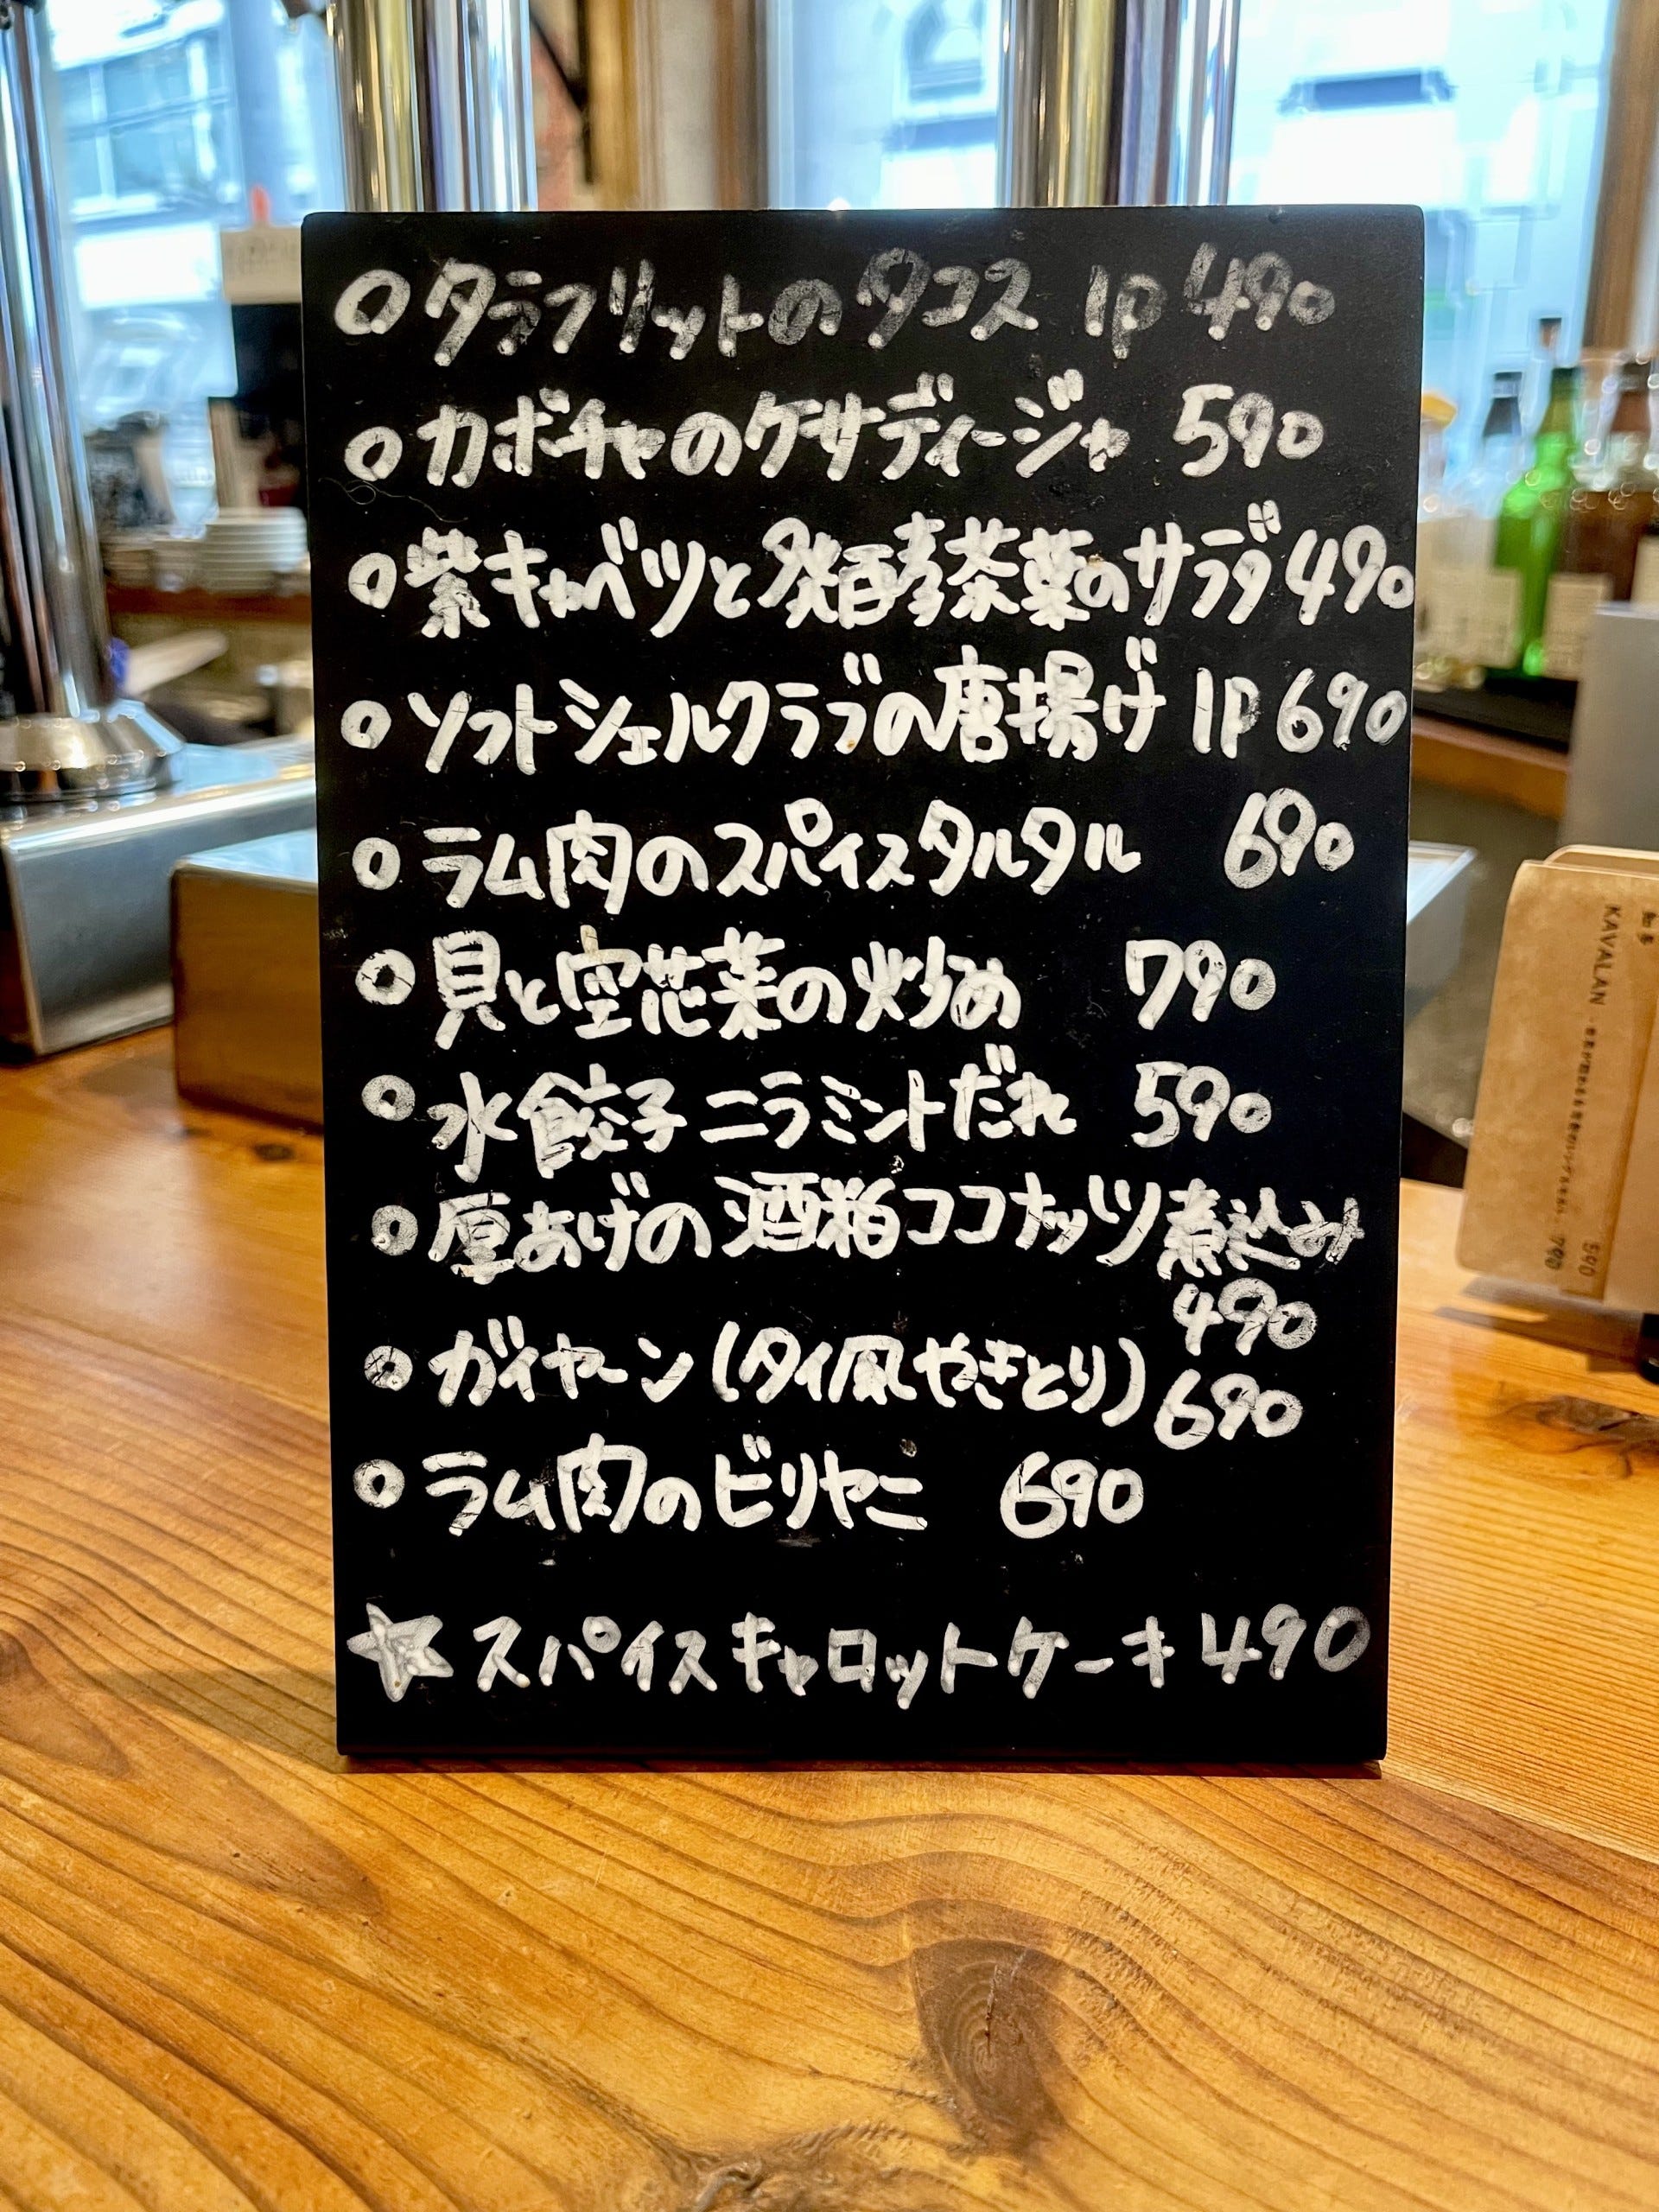 ○タラフリットのタコス 1P 490
○カボチャのケサディージャ 590
○紫キャベツと発酵茶葉のサラダ 490
○ソフトシェルクラブの唐揚げ 1P 690
○ラム肉のスパイスタルタル 690
○貝と空芯菜の炒め 790
○水餃子 ニラミントだれ 590
○厚あげの酒粕ココナッツ煮込み
490
○ガイヤーン(タイ風やきとり) 690
○ラム肉のビリヤニ 690
☆スパイスキャロットケーキ 490
KAVALAN
590
790